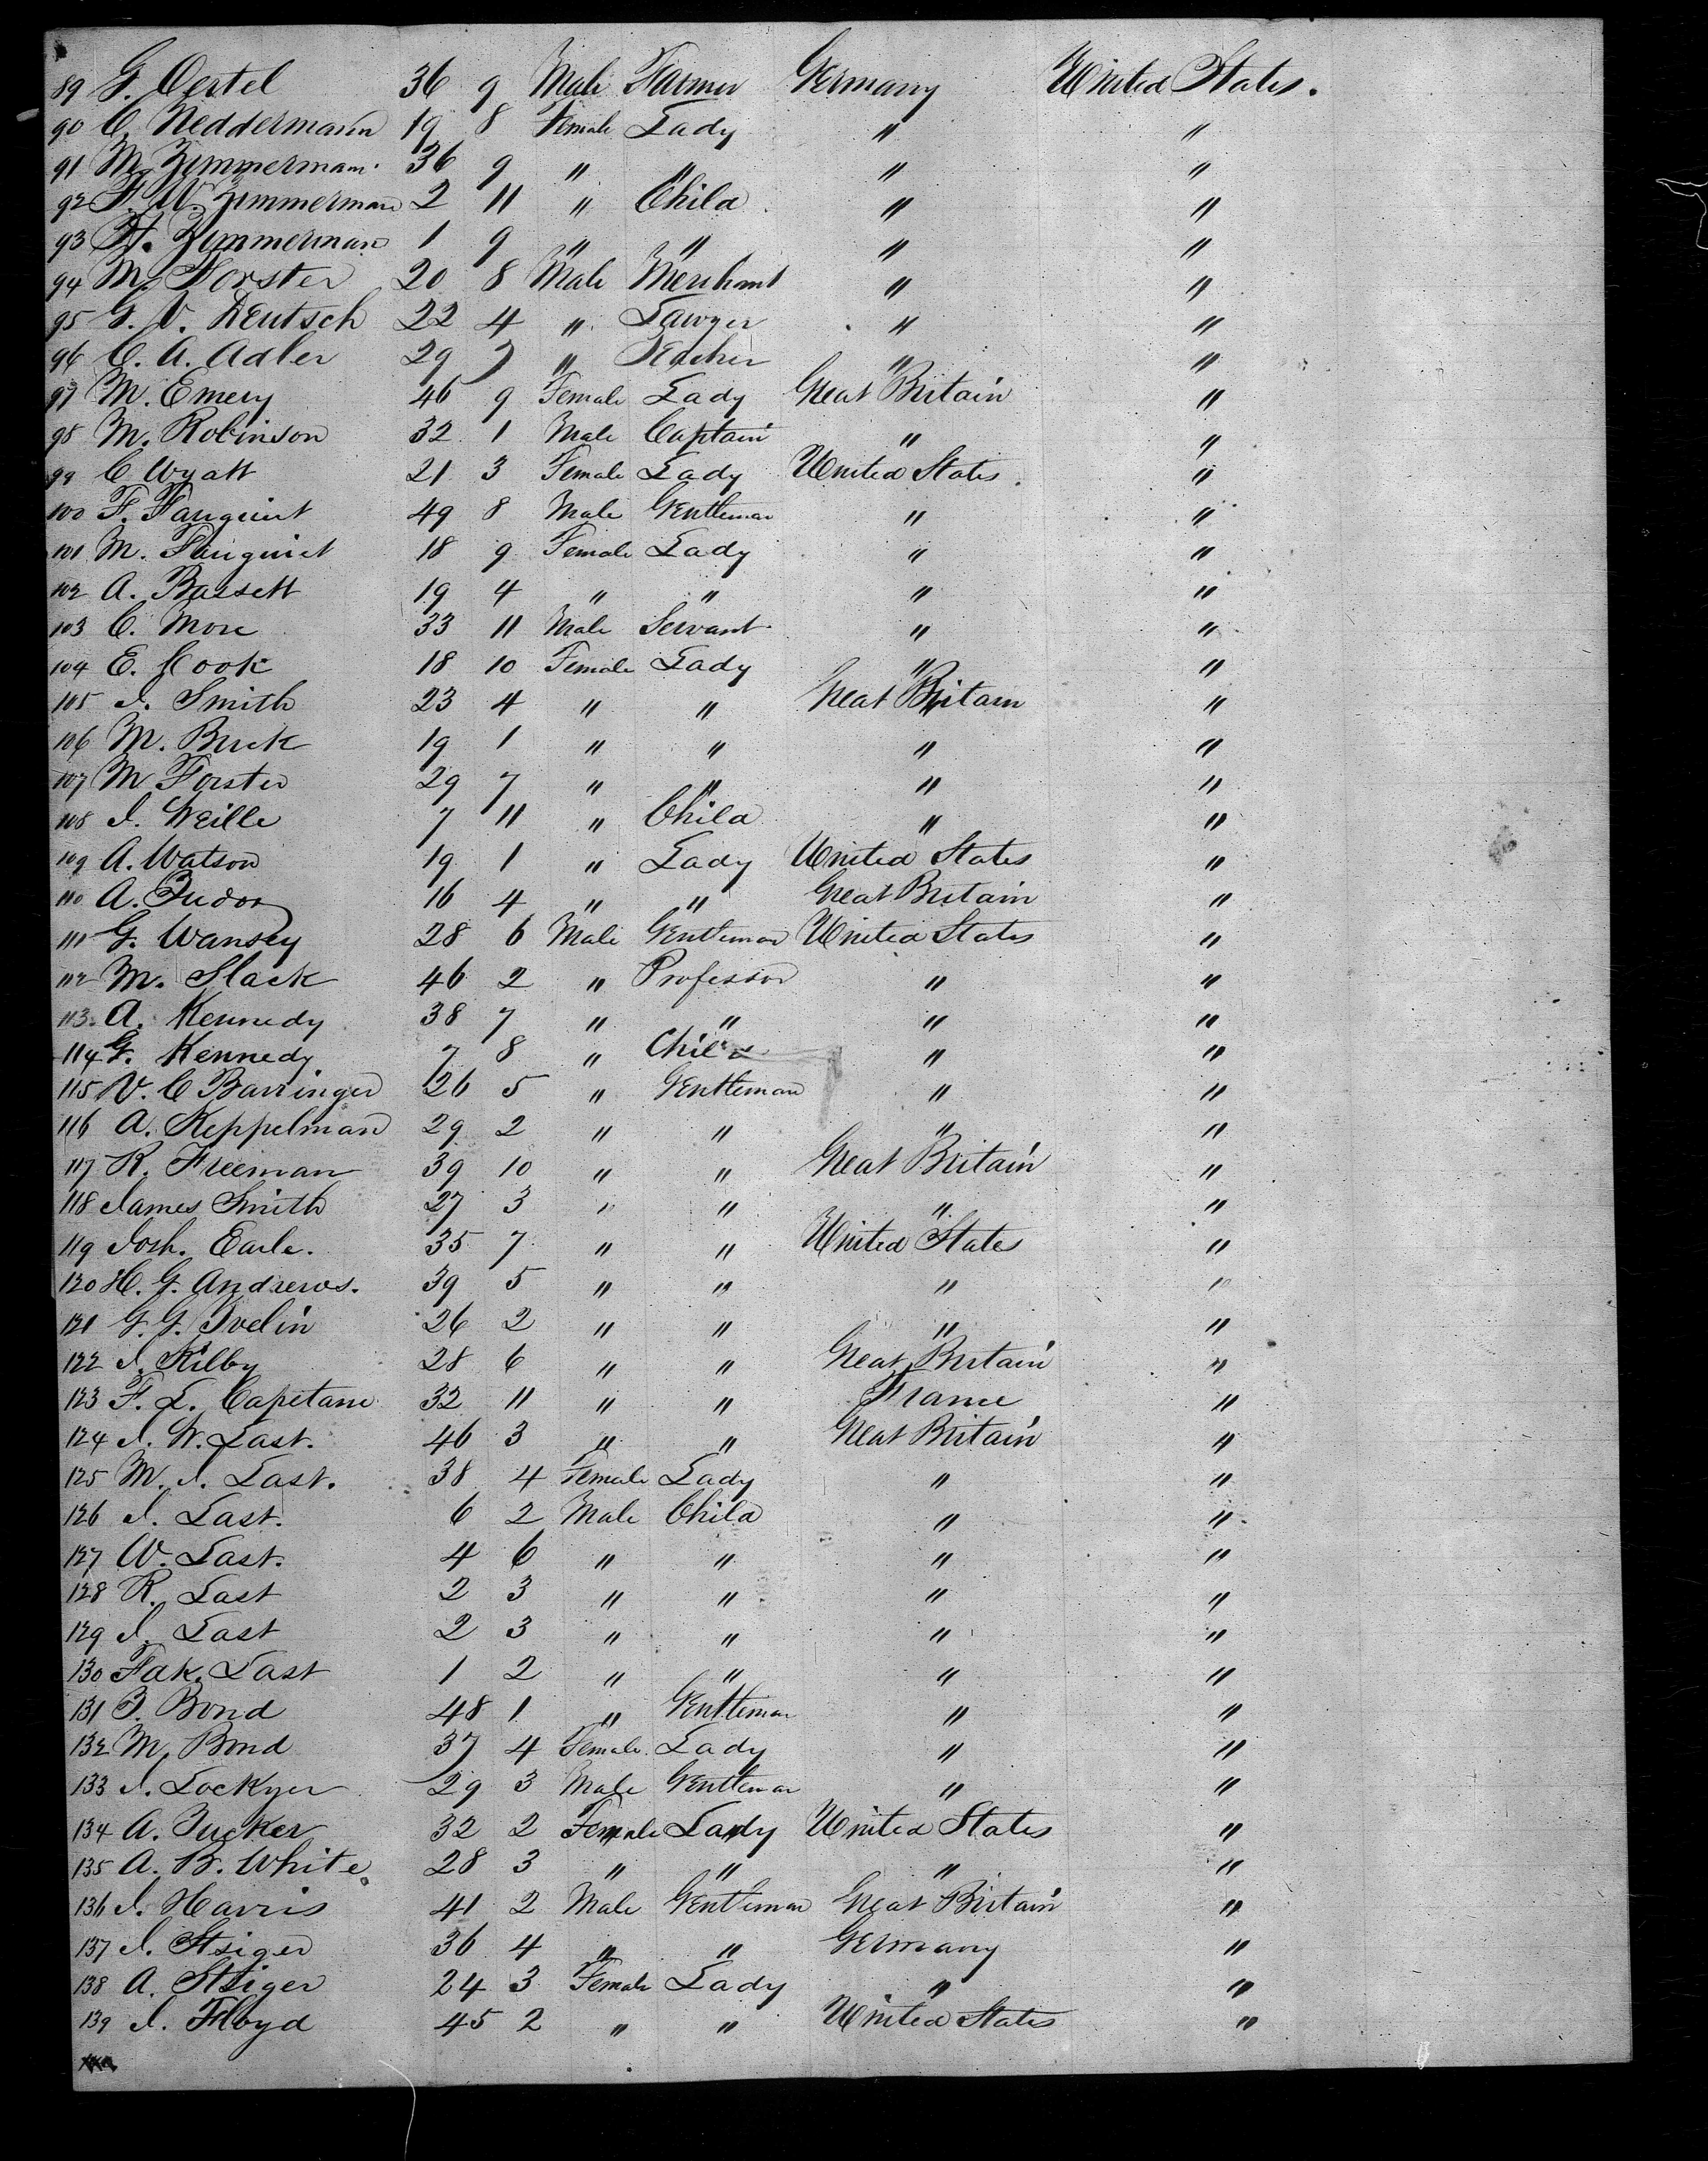 89 G. Oertel 36 9 Male Farmer Germany United States.
90 C. Neddermann 19 8 Female Lady " "
91 M. Zimmerman 36 9 " " " "
92 F. W. Zimmerman 2 11 " Child " "
93 H. Zimmerman 1 9 " " " "
94 M. Forster 20 8 Male Merchant " "
95 G. V. Deutsch 22 4 " Lawyer " "
96 C. A. Adler 29 7 " Teacher " "
97 M. Emery 46 9 Female Lady Great Britain "
98 M. Robinson 32 1 Male Captain " "
99 C Wyatt 21 3 Female Lady United States "
100 F. Fauquiet 49 8 Male Gentleman " "
101 M. Fauquiet 18 9 Female Lady " "
102 A. Bassett 19 4 " " " "
103 C. More 33 11 Male Servant " "
104 E. Cook 18 10 Female Lady " "
105 J. Smith 23 4 " " Great Britain "
106 M. Buck 19 1 " " " "
107 M Forster 29 7 " " " "
108 J. Weille 7 11 " Child " "
109 A. Watson 19 1 " Lady United States "
110 A. Tudor 16 4 " " Great Britain "
111 G. Wansey 28 6 Male Gentleman United States "
112 M. Slack 46 2 " Professor " "
113. A. Kennedy 38 7 " " " "
114 G. Kennedy 7 8 " Child " "
115 V. C Barringer 26 5 " Gentleman " "
116 A. Keppelman 29 2 " " " "
117 R. Freeman 39 10 " " Great Britain "
118 James Smith 27 3 " " " "
119 Josh. Earle. 35 7 " " United States "
120 H. G. Andrews. 39 5 " " " "
121 G. G. Ivelin 26 2 " " " "
122 J. Kilby 28 6 " " Great Britain "
123 F. L. Capitane 32 11 " " France "
124 J. W. Last. 46 3 " " Great Britain "
125 M. J. Last. 38 4 Female Lady " "
126 J. Last. 6 2 Male Child " "
127 W. Last. 4 6 " " " "
128 R. Last 2 3 " " " "
129 J. Last 2 3 " " " "
130 Fak. Last 1 2 " " " "
131 T. Bond 48 1 " Gentleman " "
132 M. Bond 37 4 Female Lady " "
133 J. Lockyer 29 3 Male Gentleman " "
134 A. Tucker 32 2 Female Lady United States "
135 A. B. White. 28 3 " " " "
136 J. Harris 41 2 Male Gentleman Great Britain "
137 J. Stsiger 36 4 " " Germany "
138 A. Stsiger 24 3 Female Lady " "
139 J. Floyd 45 2 " " United States "